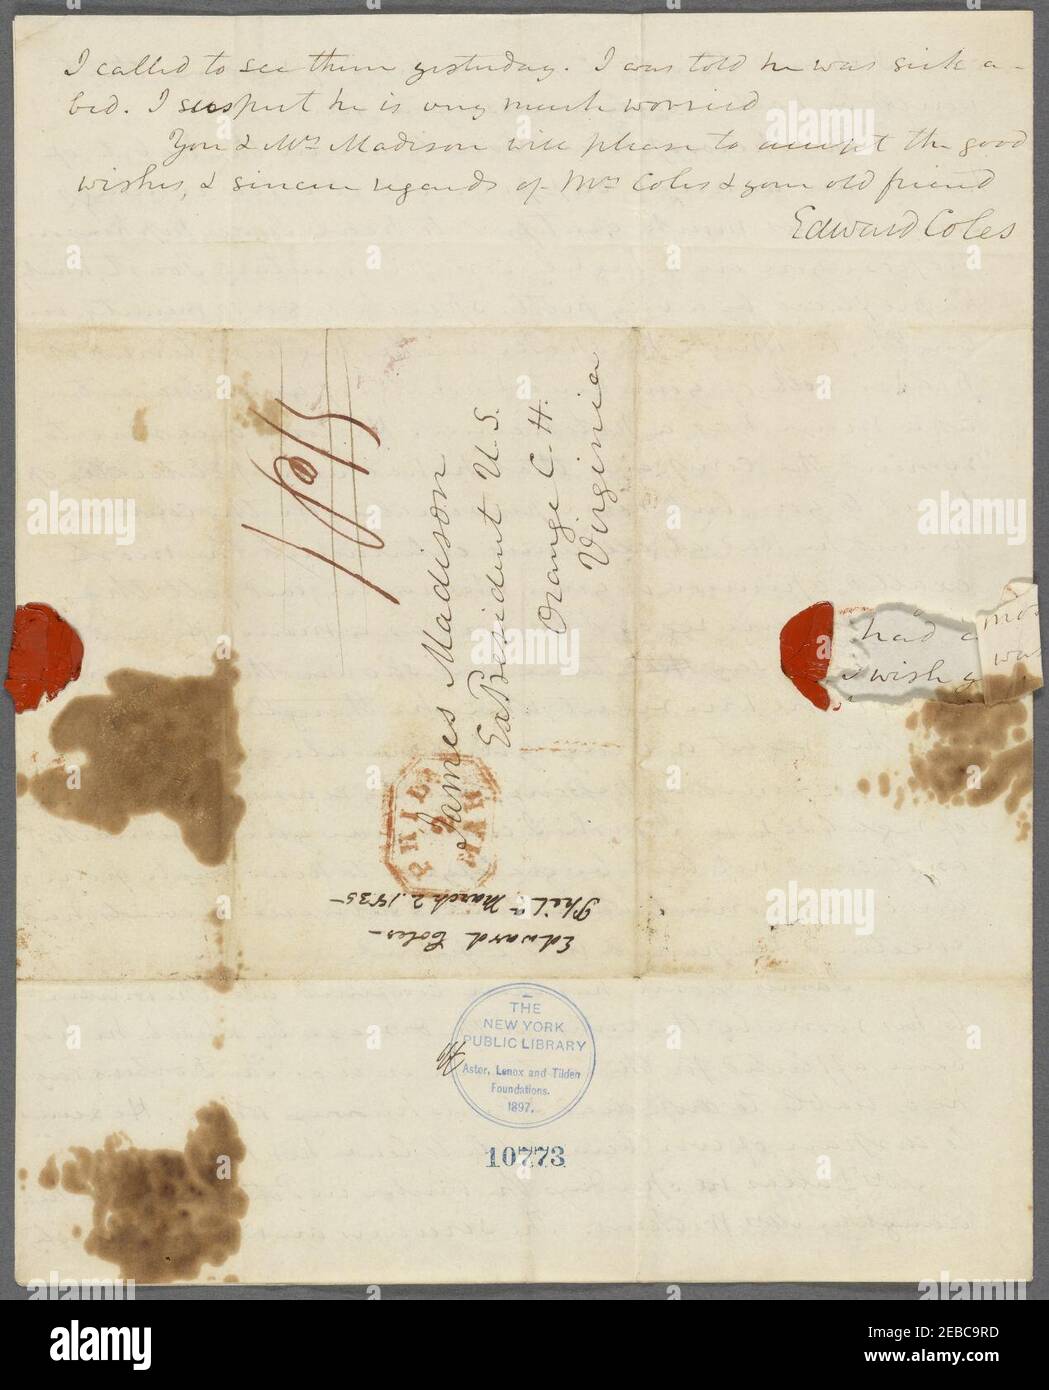 I called to see them yesterday. I was told he was sick a-
bed. I suspect he is very much worried
You & Mrs Madison will please to accept the good
wishes, & sincere regards of Mrs Coles & your old friend
Edward Coles
James Madison
Ex President U.S.
Orange C. H.
Virginia
had a
I wish y
mo
was
PHIL
2
MAR
Edward Coles-
Phila March 2. 1835-
THE
NEW YORK
PUBLIC LIBRARY
Astor, Lenox and Tilden
Foundations.
1897.
10773
alamy
Image ID: 2EBC9RD
www.alamy.com